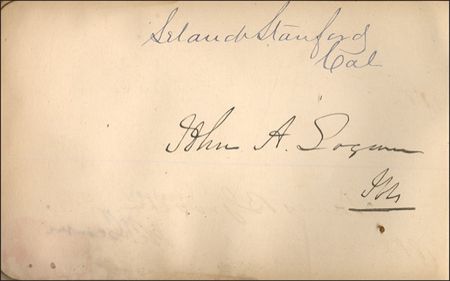 Leland Stanford
Cal
John A. Logan
Ills